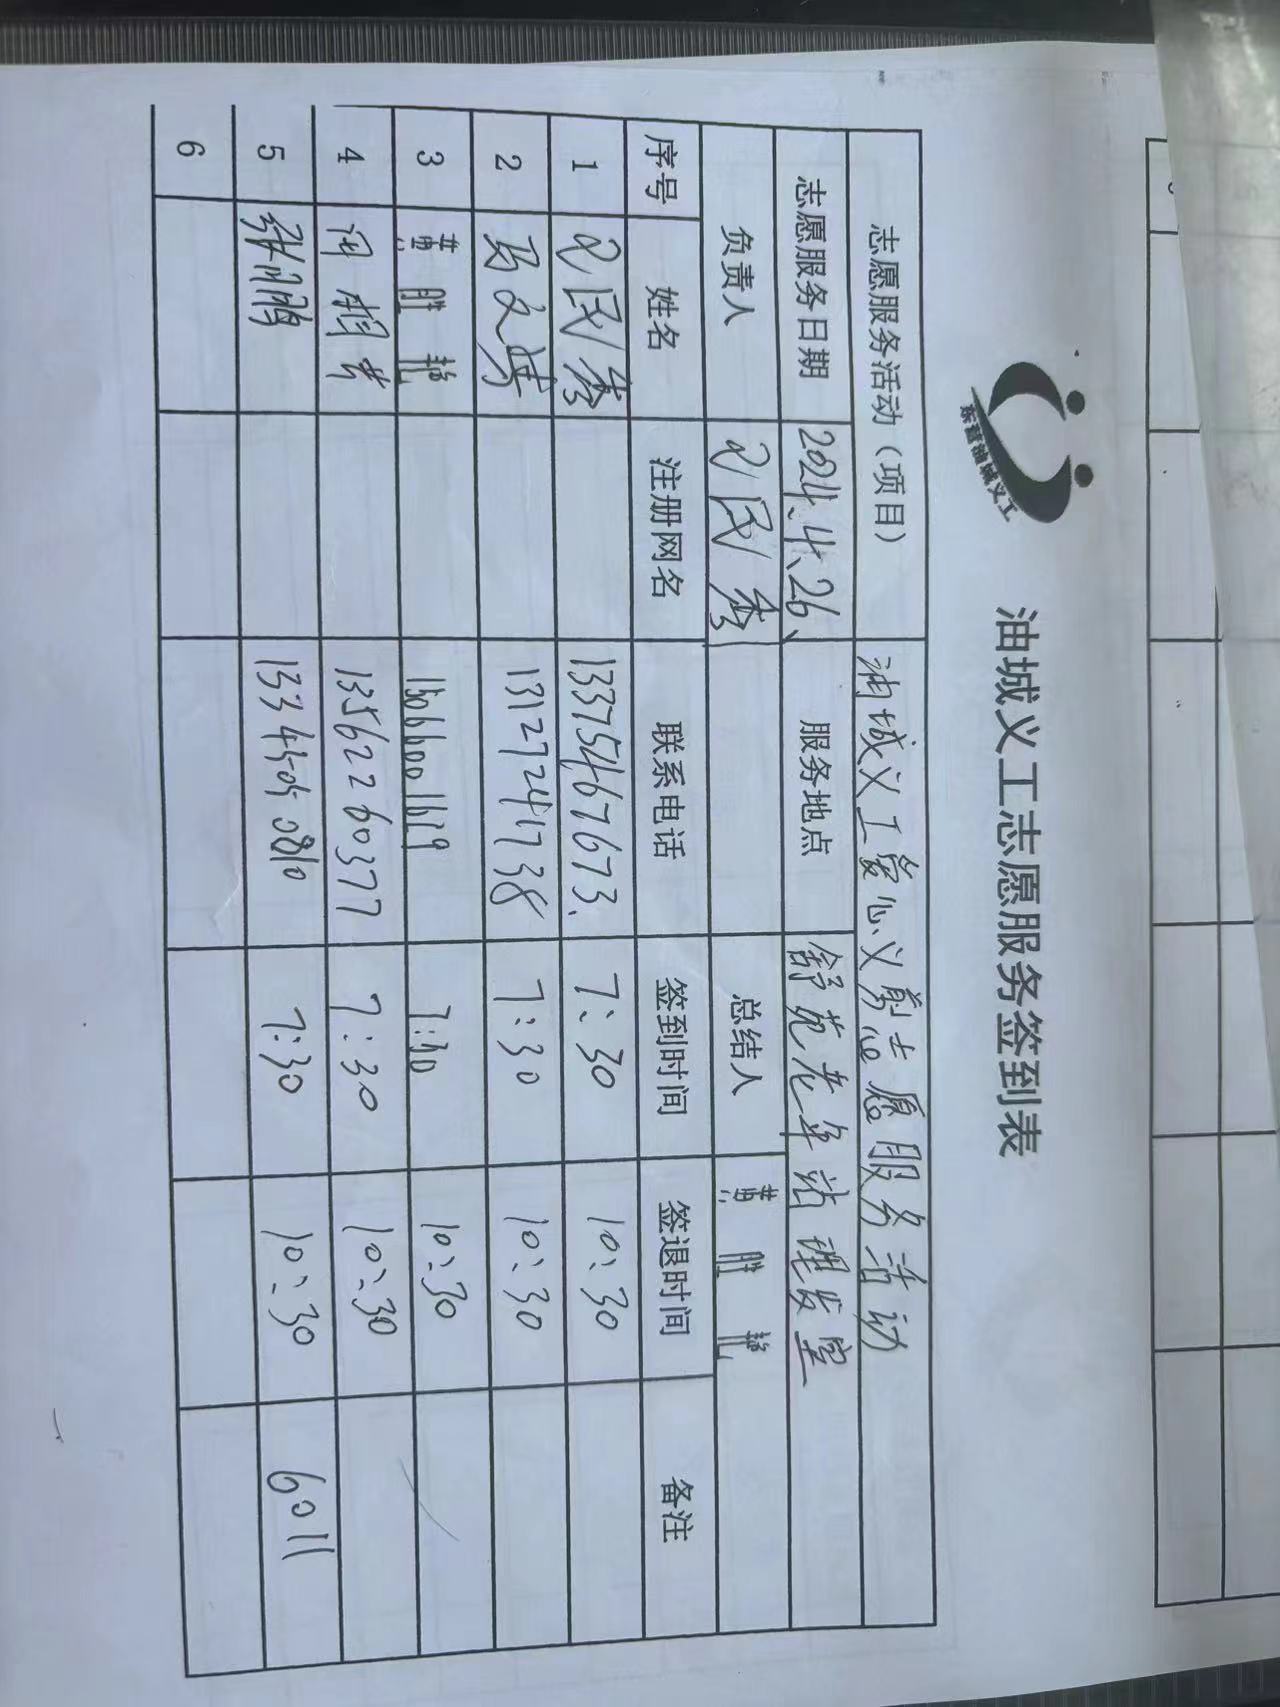 东营油城义工
油城义工志愿服务签到表
志愿服务活动（项目） 油城义工爱心义剪志愿服务活动
志愿服务日期 2024.4.26、 服务地点 舒苑老年站理发室
负责人 民秀 总结人 黄胜艳
序号 姓名 注册网名 联系电话 签到时间 签退时间 备注
1 民秀 13375467673. 7:30 10:30
2 马文 13127241738 7:30 10:30
3 黄胜艳 15066001629 7:30 10:30
4 13562260377 7:30 10:30
5 张鹏 13345050810 7:30 10:30 6011
6